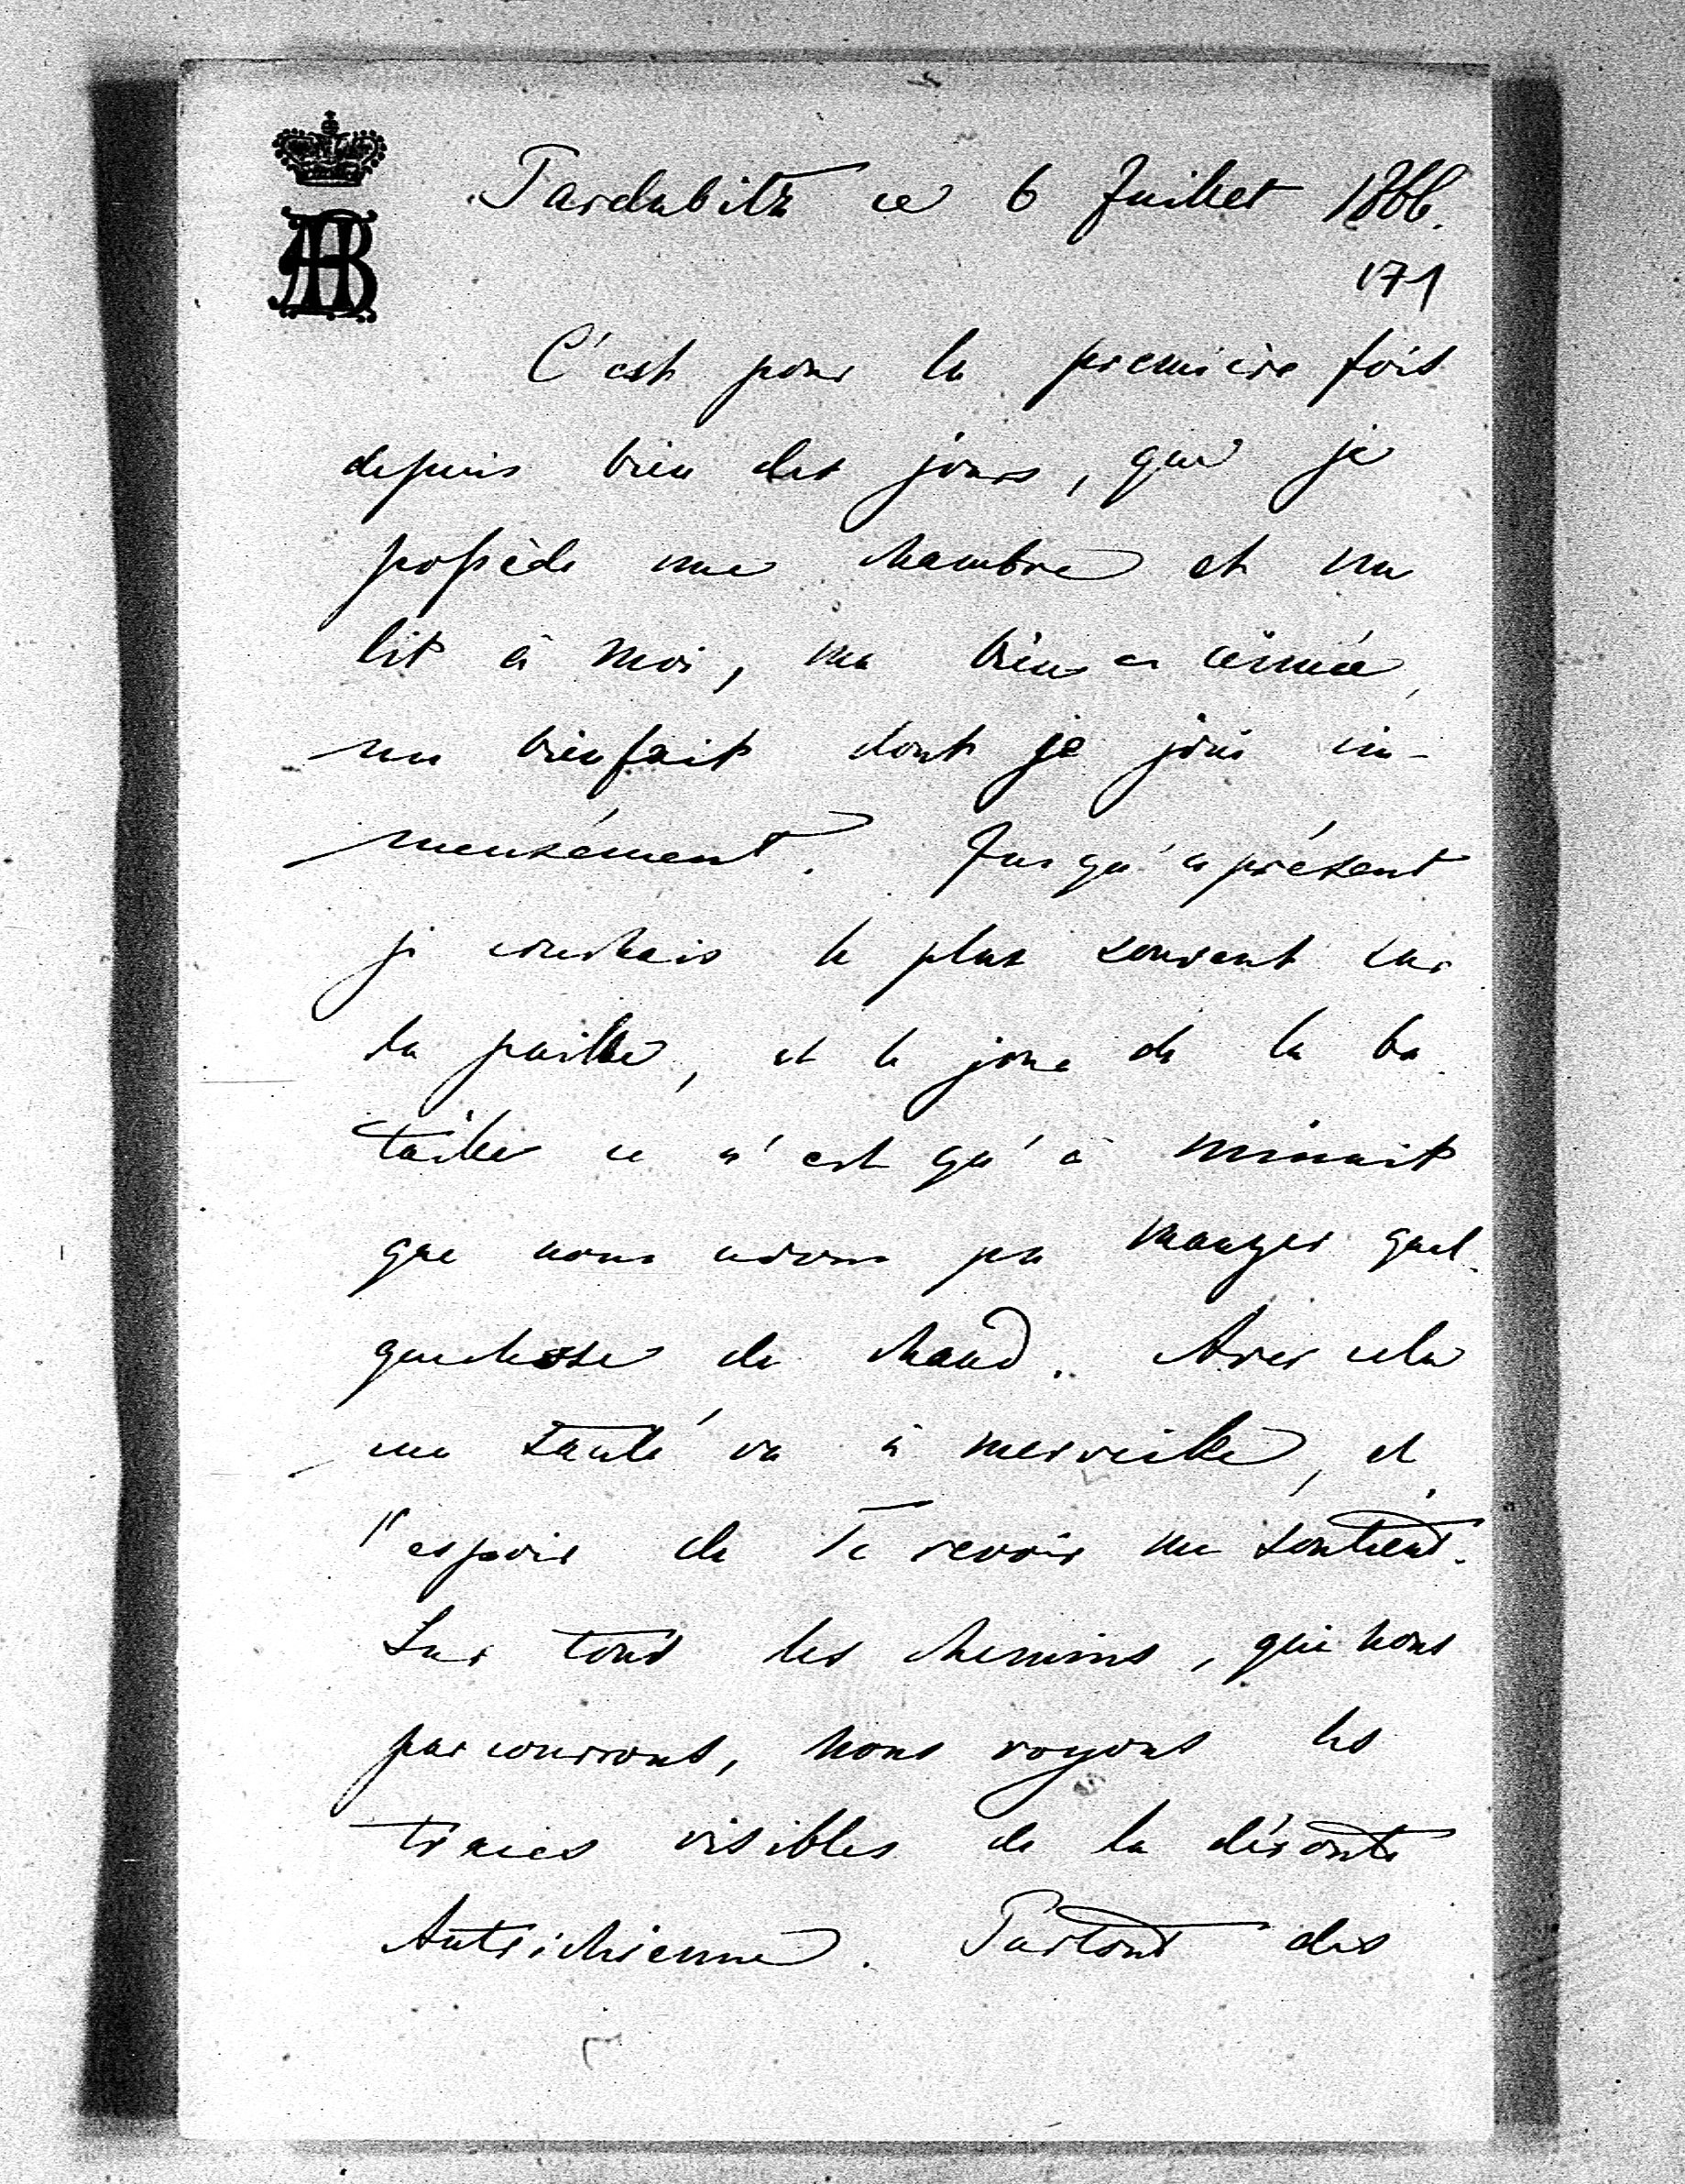 AHB
Pardubitz ce 6 Juillet 1866.
171
C'est pour la première fois
depuis bien des jours, que je
possède une chambre et un
lit à moi, ma bien aimée,
un bienfait dont je joui im-
mensément. Jusqu'à présent
je couchais le plus souvent sur
la paille, et le jour de la ba
taille ce n'est qu'à minuit
que nous avons pu manger quel
quechose de chaud. Avec cela
ma santé va à merveille, et
l'espoir de Te revoir me soutient.
Sur tous les chemins, que nous
parcourrons, nous voyons les
traces visibles de la déroute
Autrichienne. Partout des